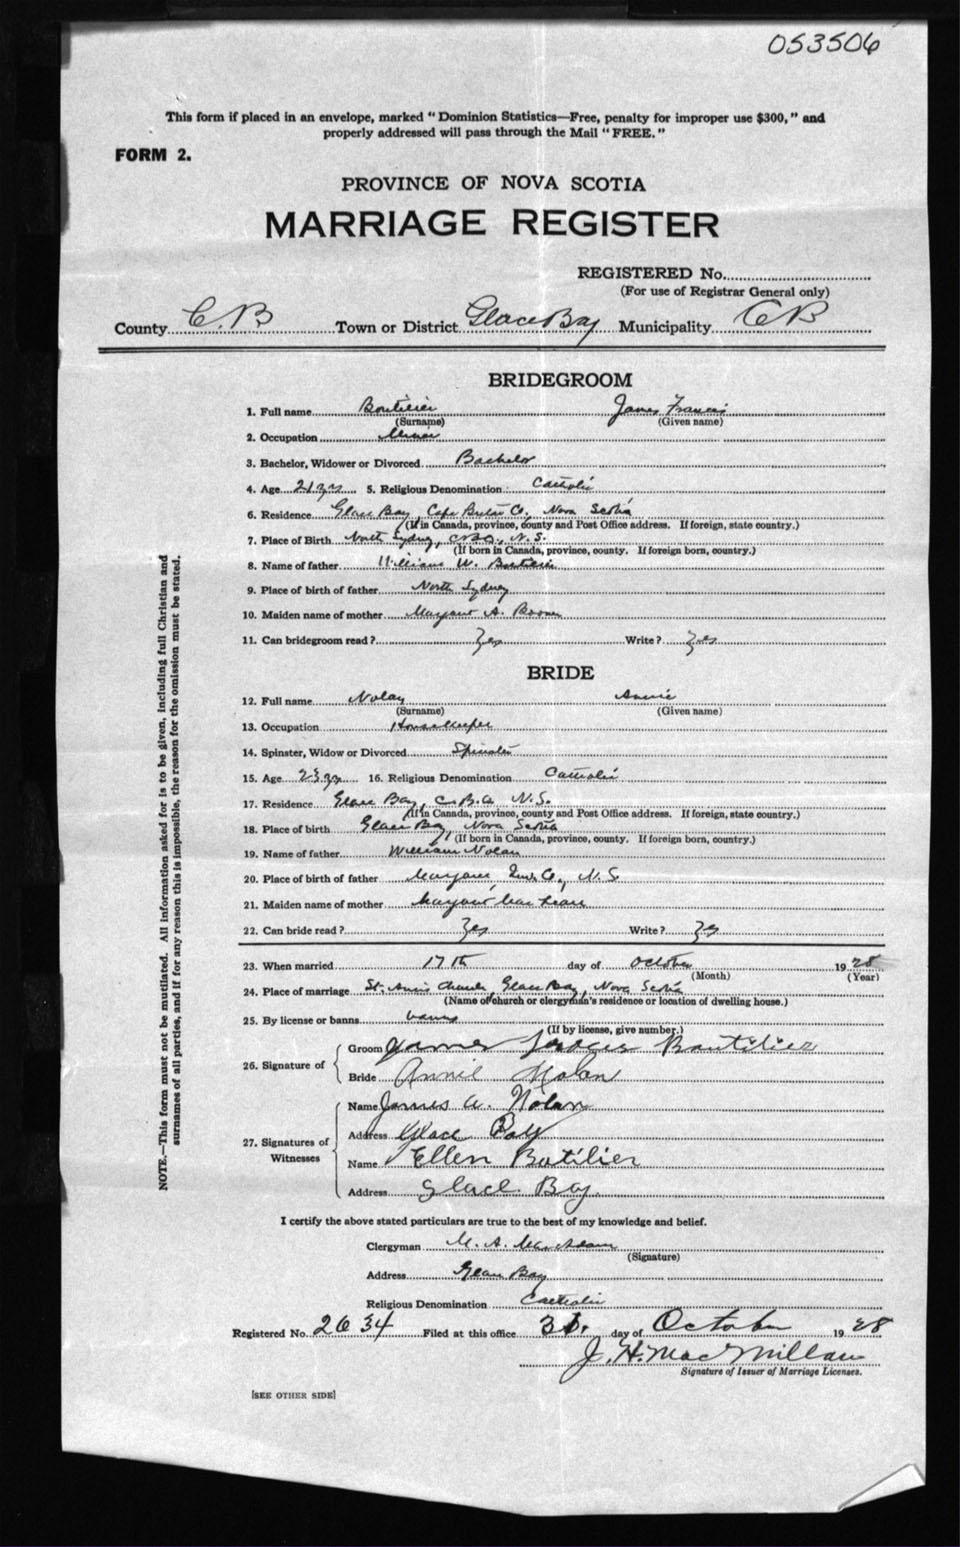 053506
This form if placed in an envelope, marked “Dominion Statistics—Free, penalty for improper use $300,” and
properly addressed will pass through the Mail “FREE.”
FORM 2.
PROVINCE OF NOVA SCOTIA
MARRIAGE REGISTER
REGISTERED No.
(For use of Registrar General only)
County C. B Town or District Glace Bay Municipality C B
BRIDEGROOM
1. Full name Boutilier James Francis
(Surname) (Given name)
2. Occupation Miner
3. Bachelor, Widower or Divorced Bachelor
4. Age 21 yrs 5. Religious Denomination Catholic
6. Residence Glace Bay, Cape Breton Co., Nova Scotia
(If in Canada, province, county and Post Office address. If foreign, state country.)
7. Place of Birth North Sydney, C.B.Co., N.S.
(If born in Canada, province, county. If foreign born, country.)
8. Name of father William W. Boutilier
9. Place of birth of father North Sydney
10. Maiden name of mother Margaret A.
11. Can bridegroom read? Yes Write? Yes
BRIDE
12. Full name Nolan Annie
(Surname) (Given name)
13. Occupation Housekeeper
14. Spinster, Widow or Divorced Spinster
15. Age 23 yrs 16. Religious Denomination Catholic
17. Residence Glace Bay, C.B.Co. N.S.
(If in Canada, province, county and Post Office address. If foreign, state country.)
18. Place of birth Glace Bay, Nova Scotia
(If born in Canada, province, county. If foreign born, country.)
19. Name of father William Nolan
20. Place of birth of father Margaree, Inv. Co., N.S.
21. Maiden name of mother Margaret MacLean
22. Can bride read? Yes Write? Yes
23. When married 17th day of October 1928
(Month) (Year)
24. Place of marriage St. Ann's Church, Glace Bay, Nova Scotia
(Name of church or clergyman's residence or location of dwelling house.)
25. By license or banns banns
(If by license, give number.)
26. Signature of
Groom James Boutilier
Bride Annie Nolan
27. Signatures of Witnesses
Name James A. Nolan
Address Glace Bay
Name Ellen Butilier
Address Glace Bay.
I certify the above stated particulars are true to the best of my knowledge and belief.
Clergyman M. A. MacAdam
(Signature)
Address Glace Bay
Religious Denomination Catholic
Registered No. 2634 Filed at this office 31. day of October 1928
J. H. MacMillan
Signature of Issuer of Marriage Licenses.
[SEE OTHER SIDE]
NOTE.—This form must not be mutilated. All information asked for is to be given, including full Christian and
surnames of all parties, and if for any reason this is impossible, the reason for the omission must be stated.